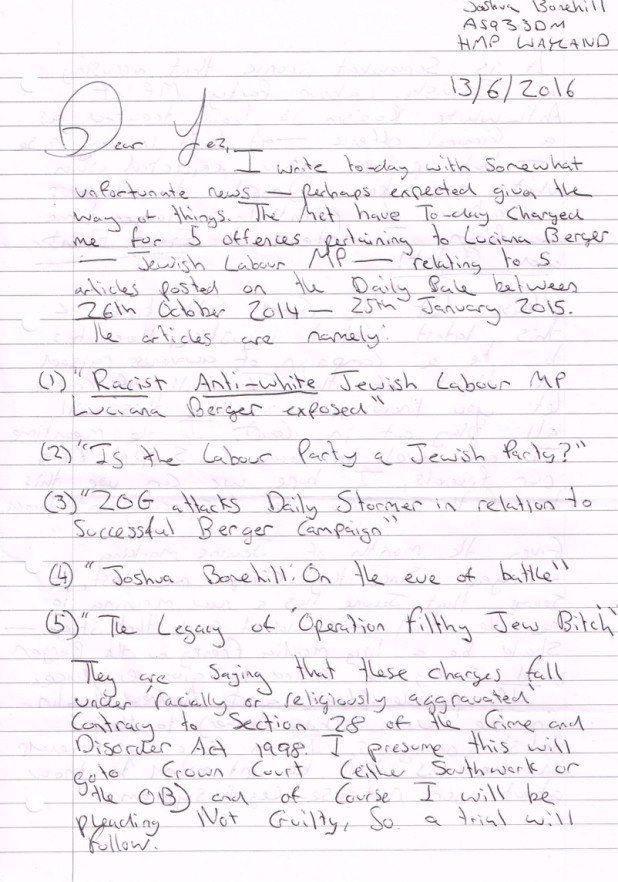 Joshua Bonehill
A5933DM
HMP WAYLAND
13/6/2016
Dear Jez,
I write to-day with somewhat
unfortunate news — perhaps expected given the
way of things. The Met have To-day charged
me for 5 offences pertaining to Luciana Berger
— Jewish Labour MP — relating to 5
articles posted on the Daily Bale between
26th October 2014 — 25th January 2015.
The articles are namely:
(1) "Racist Anti-white Jewish Labour MP
Luciana Berger exposed"
(2) "Is the Labour Party a Jewish Party?"
(3) "ZOG attacks Daily Stormer in relation to
Successful Berger Campaign"
(4) "Joshua Bonehill: On the eve of battle"
(5) "The Legacy of 'Operation filthy Jew Bitch'
They are saying that these charges fall
under 'racially or religiously aggravated'
Contrary to Section 28 of the Crime and
Disorder Act 1998. I presume this will
goto Crown Court (either Southwark or
the OB) and of course I will be
pleading Not Guilty, so a trial will
follow.